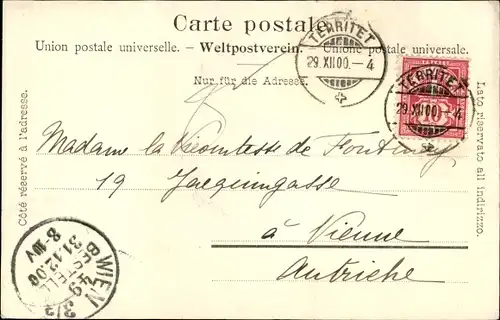 Carte postale.
Union postale universelle. – Weltpostverein. – Unione postale universale.
Nur für die Adresse.
TERRITET
29.XII.00.–4
TERRITET
29.XII.00.–4
Côté réservé à l'adresse.
Lato riservato all indirizzo.
Madame la Vicomtesse de Fontenay
19 Jacquingasse
à Vienne
Autriche
WIEN 3/3
49
BESTELLT
31.12.00
8-